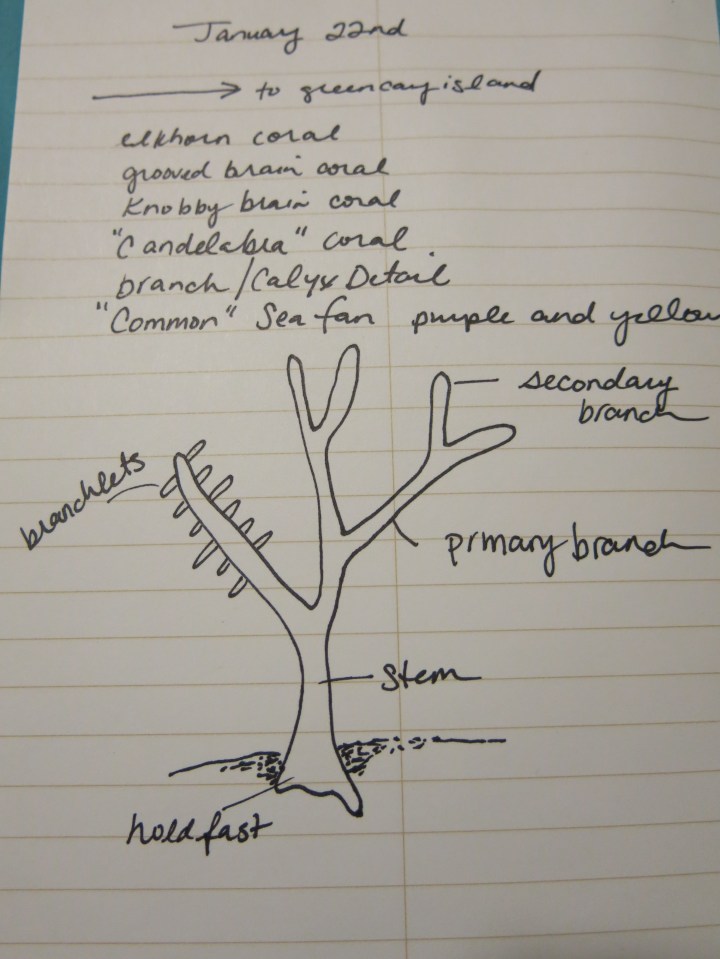 January 22nd
→ to greencay island
elkhorn coral
grooved brain coral
Knobby brain coral
"Candelabra" coral
branch/Calyx Detail
"Common" Sea fan purple and yellow
secondary
branch
branchlets
prmary branch
stem
holdfast